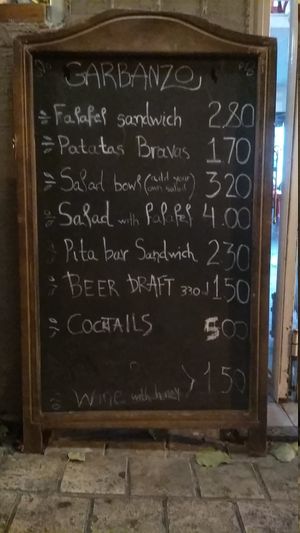 GARBANZO
Falafel sandwich 2.80
Patatas Bravas 1.70
Salad bowl (build your own salad) 3.20
Salad with Falafel 4.00
Pita bar Sandwich 2.30
BEER DRAFT 330 1.50
COCKTAILS 5.00
Wine with honey 1.50